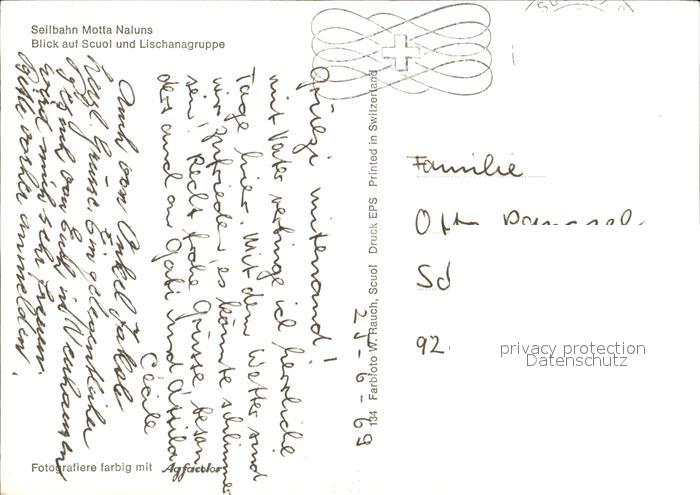 Seilbahn Motta Naluns
Blick auf Scuol und Lischanagruppe
Grüezi mitenand!
mit Vater verbringe ich herrliche
Tage hier. Mit dem Wetter sind
wir zufrieden, es könnte schlimmer
sein. Recht frohe Grüsse besonders
auch an Gabi und Attila
Cécile
Auch von Onkel Jakob
herzl. Grüsse. Ein gelegentlicher
von Euch in
wird mich sehr freuen.
Bitte vorher anmelden.
25-6-69
134 Farbfoto W. Rauch, Scuol Druck EPS Printed in Switzerland
Familie
Otto
Sd
92
privacy protection
Datenschutz
Fotografiere farbig mit Agfacolor